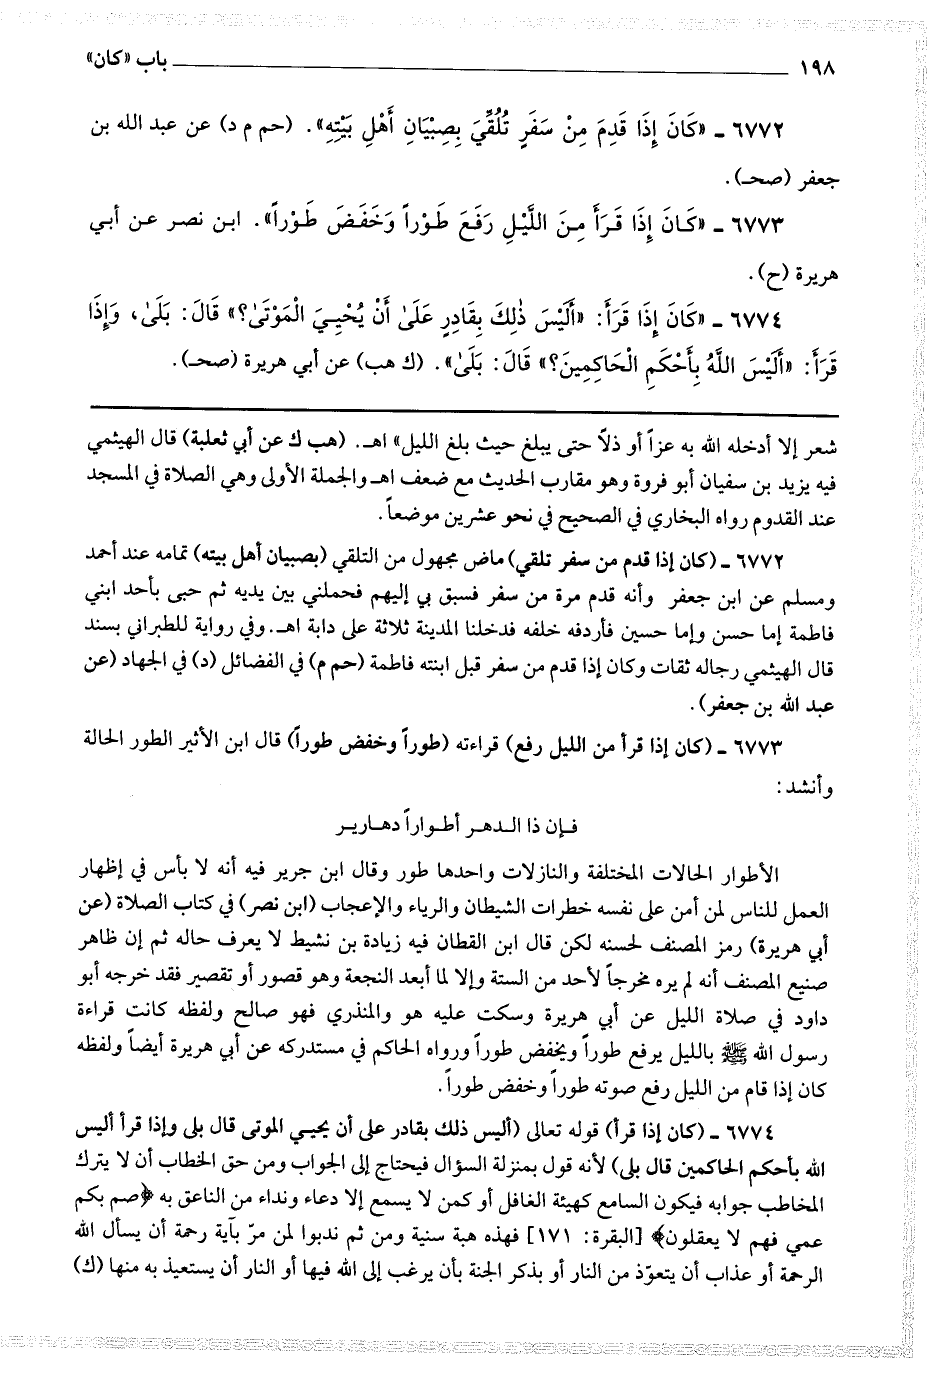 ١٩٨ باب «كان»
٦٧٧٢ ـ «كَانَ إِذَا قَدِمَ مِنْ سَفَرٍ تُلُقِّيَ بِصِبْيَانِ أَهْلِ بَيْتِهِ». (حم م د) عن عبد الله بن
جعفر (صحـ).
٦٧٧٣ ـ «كَانَ إِذَا قَرَأَ مِنَ اللَّيْلِ رَفَعَ طَوْراً وَخَفَضَ طَوْراً». ابن نصر عن أبي
هريرة (ح).
٦٧٧٤ ـ «كَانَ إِذَا قَرَأَ: «أَلَيْسَ ذٰلِكَ بِقَادِرٍ عَلَىٰ أَنْ يُحْيِيَ الْمَوْتَىٰ؟» قَالَ: بَلَىٰ، وَإِذَا
قَرَأَ: «أَلَيْسَ اللَّهُ بِأَحْكَمِ الْحَاكِمِينَ؟» قَالَ: بَلَىٰ». (ك هب) عن أبي هريرة (صحـ).
شعر إلا أدخله الله به عزاً أو ذلاً حتى يبلغ حيث بلغ الليل» اهـ. (هب ك عن أبي ثعلبة) قال الهيثمي
فيه يزيد بن سفيان أبو فروة وهو مقارب الحديث مع ضعف اهـ والجملة الأولى وهي الصلاة في المسجد
عند القدوم رواه البخاري في الصحيح في نحو عشرين موضعاً.
٦٧٧٢ ـ (كان إذا قدم من سفر تلقي) ماض مجهول من التلقي (بصبيان أهل بيته) تمامه عند أحمد
ومسلم عن ابن جعفر وأنه قدم مرة من سفر فسبق بي إليهم فحملني بين يديه ثم جىء بأحد ابني
فاطمة إما حسن وإما حسين فأردفه خلفه فدخلنا المدينة ثلاثة على دابة اهـ. وفي رواية للطبراني بسند
قال الهيثمي رجاله ثقات وكان إذا قدم من سفر قبل ابنته فاطمة (حم م) في الفضائل (د) في الجهاد (عن
عبد الله بن جعفر).
٦٧٧٣ ـ (كان إذا قرأ من الليل رفع) قراءته (طوراً وخفض طوراً) قال ابن الأثير الطور الحالة
وأنشد:
فـإن ذا الـدهـر أطـواراً دهـاريـر
الأطوار الحالات المختلفة والنازلات واحدها طور وقال ابن جرير فيه أنه لا بأس في إظهار
العمل للناس لمن أمن على نفسه خطرات الشيطان والرياء والإعجاب (ابن نصر) في كتاب الصلاة (عن
أبي هريرة) رمز المصنف لحسنه لكن قال ابن القطان فيه زيادة بن نشيط لا يعرف حاله ثم إن ظاهر
صنيع المصنف أنه لم يره مخرجاً لأحد من الستة وإلا لما أبعد النجعة وهو قصور أو تقصير فقد خرجه أبو
داود في صلاة الليل عن أبي هريرة وسكت عليه هو والمنذري فهو صالح ولفظه كانت قراءة
رسول الله ﷺ بالليل يرفع طوراً ويخفض طوراً ورواه الحاكم في مستدركه عن أبي هريرة أيضاً ولفظه
كان إذا قام من الليل رفع صوته طوراً وخفض طوراً.
٦٧٧٤ ـ (كان إذا قرأ) قوله تعالى (أليس ذلك بقادر على أن يحيي الموتى قال بلى وإذا قرأ أليس
الله بأحكم الحاكمين قال بلى) لأنه قول بمنزلة السؤال فيحتاج إلى الجواب ومن حق الخطاب أن لا يترك
المخاطب جوابه فيكون السامع كهيئة الغافل أو كمن لا يسمع إلا دعاء ونداء من الناعق به ﴿صم بكم
عمي فهم لا يعقلون﴾ [البقرة: ١٧١] فهذه هبة سنية ومن ثم ندبوا لمن مرّ بآية رحمة أن يسأل الله
الرحمة أو عذاب أن يتعوّذ من النار أو بذكر الجنة بأن يرغب إلى الله فيها أو النار أن يستعيذ به منها (ك)